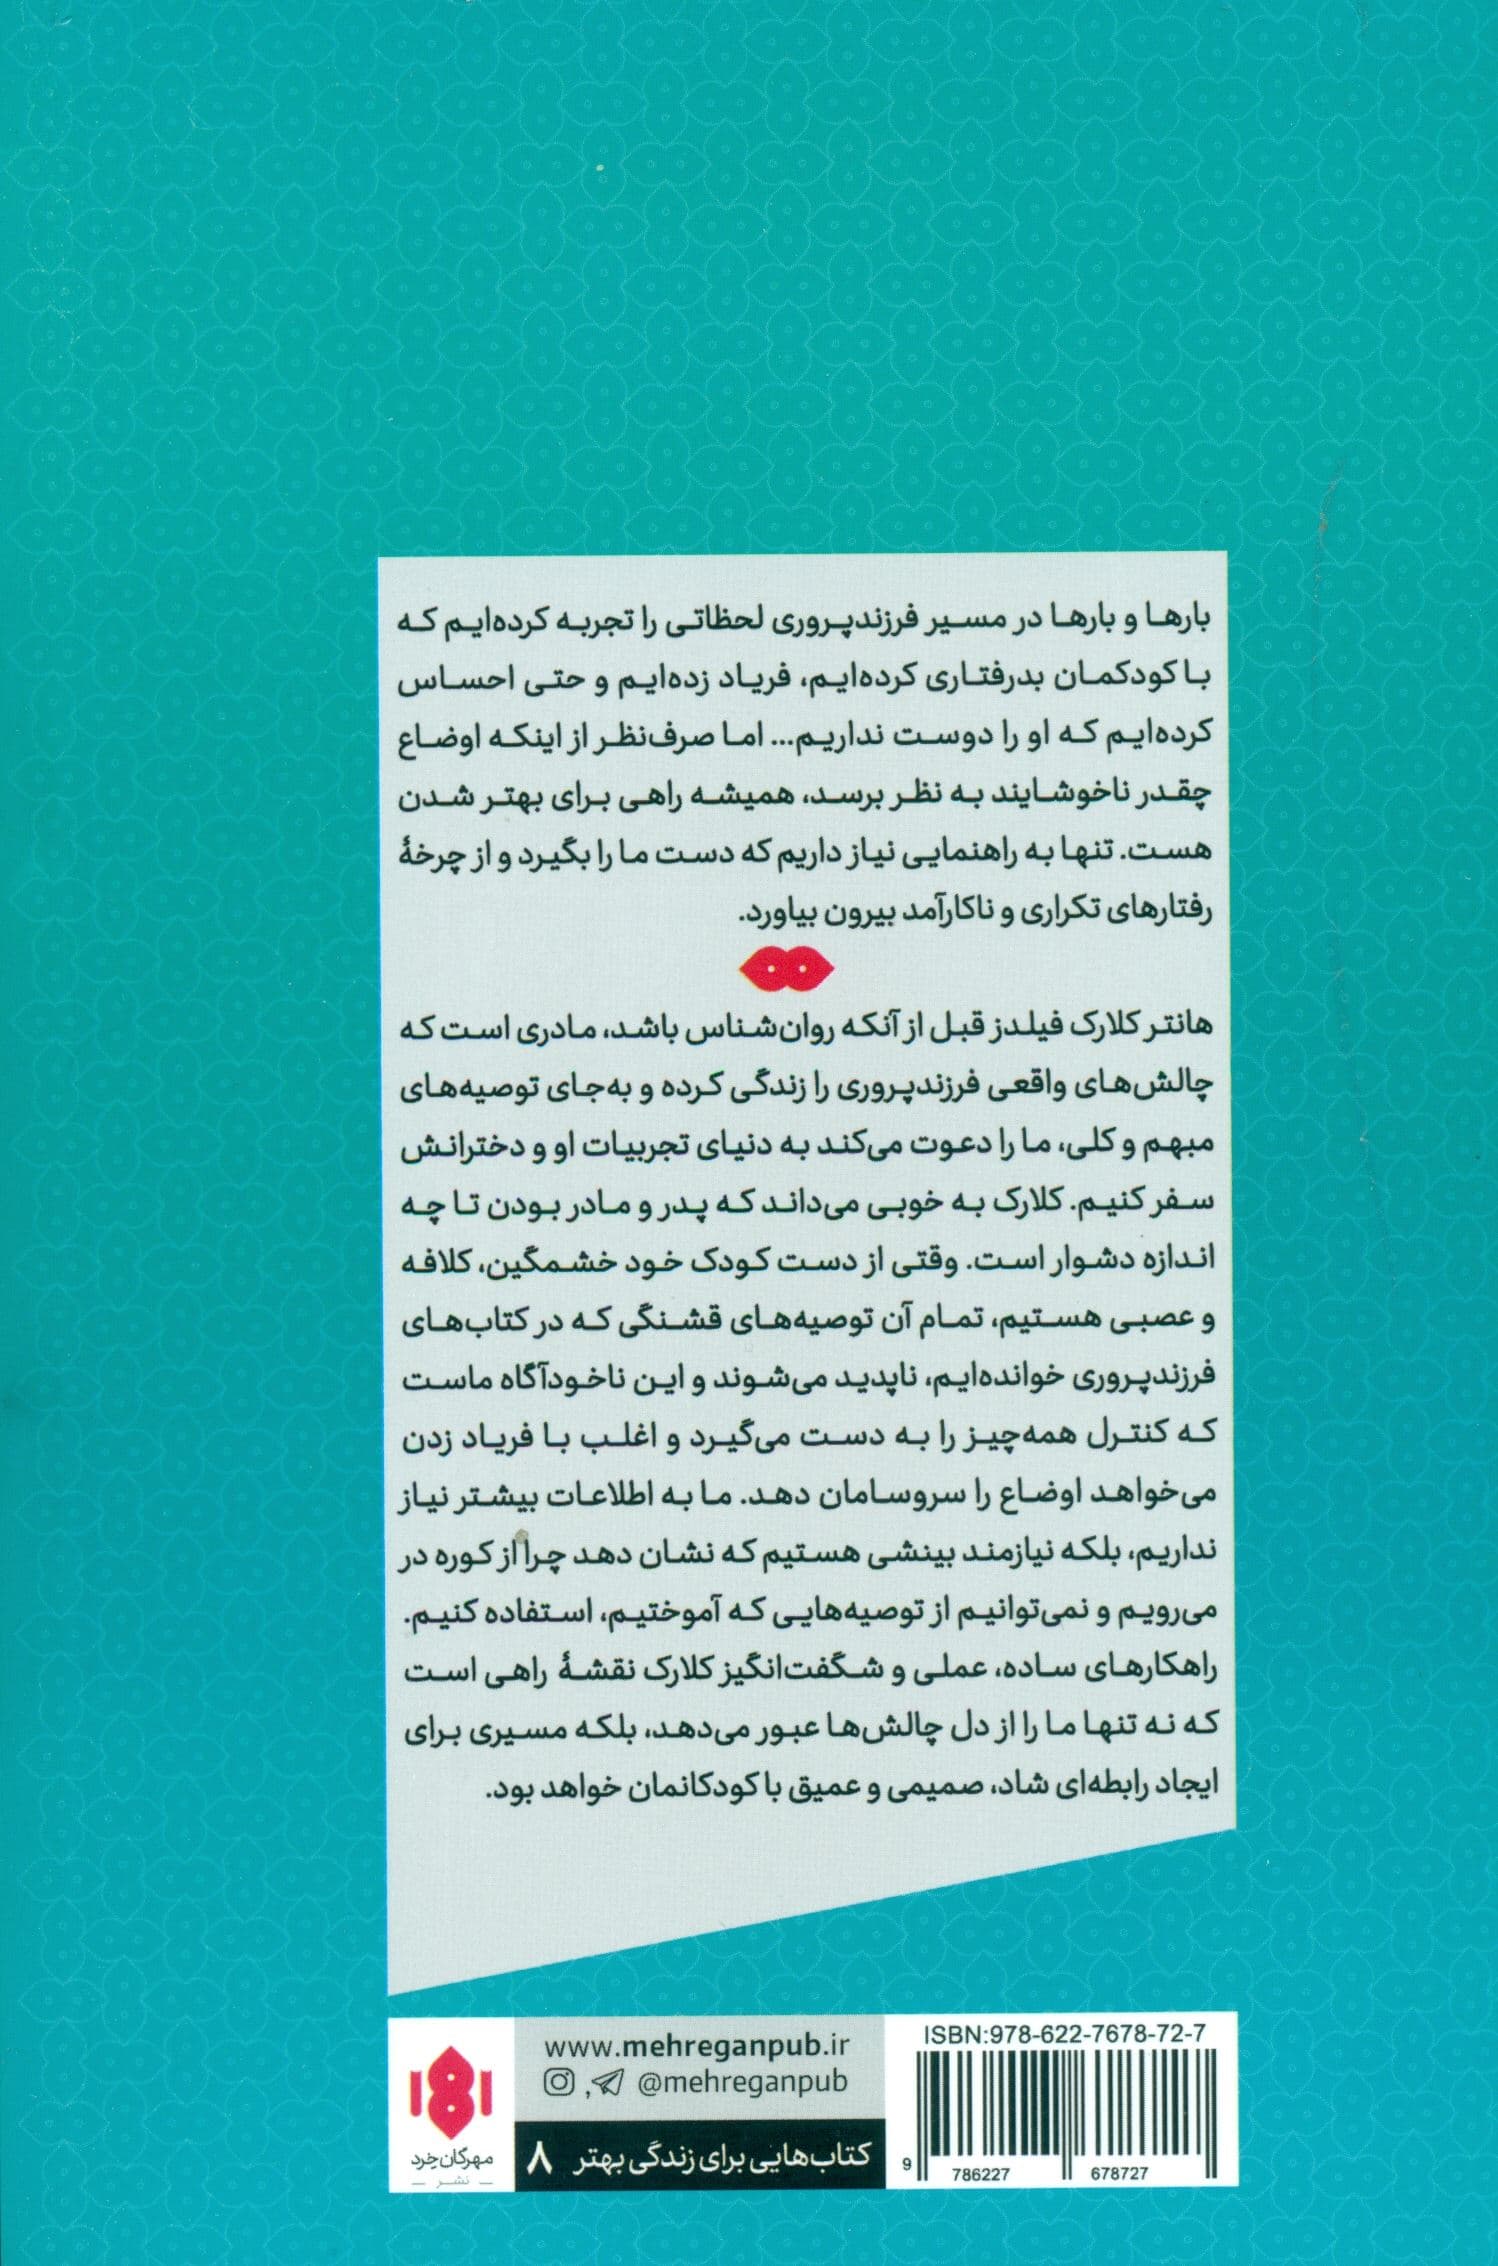 بارها و بارها در مسیر فرزندپروری لحظاتی را تجربه کرده‌ایم که
با کودکمان بدرفتاری کرده‌ایم، فریاد زده‌ایم و حتی احساس
کرده‌ایم که او را دوست نداریم... اما صرف‌نظر از اینکه اوضاع
چقدر ناخوشایند به نظر برسد، همیشه راهی برای بهتر شدن
هست. تنها به راهنمایی نیاز داریم که دست ما را بگیرد و از چرخهٔ
رفتارهای تکراری و ناکارآمد بیرون بیاورد.
هانتر کلارک فیلدز قبل از آنکه روان‌شناس باشد، مادری است که
چالش‌های واقعی فرزندپروری را زندگی کرده و به‌جای توصیه‌های
مبهم و کلی، ما را دعوت می‌کند به دنیای تجربیات او و دخترانش
سفر کنیم. کلارک به خوبی می‌داند که پدر و مادر بودن تا چه
اندازه دشوار است. وقتی از دست کودک خود خشمگین، کلافه
و عصبی هستیم، تمام آن توصیه‌های قشنگی که در کتاب‌های
فرزندپروری خوانده‌ایم، ناپدید می‌شوند و این ناخودآگاه ماست
که کنترل همه‌چیز را به دست می‌گیرد و اغلب با فریاد زدن
می‌خواهد اوضاع را سروسامان دهد. ما به اطلاعات بیشتر نیاز
نداریم، بلکه نیازمند بینشی هستیم که نشان دهد چرا از کوره در
می‌رویم و نمی‌توانیم از توصیه‌هایی که آموختیم، استفاده کنیم.
راهکارهای ساده، عملی و شگفت‌انگیز کلارک نقشهٔ راهی است
که نه تنها ما را از دل چالش‌ها عبور می‌دهد، بلکه مسیری برای
ایجاد رابطه‌ای شاد، صمیمی و عمیق با کودکانمان خواهد بود.
ISBN:978-622-7678-72-7
9 786227 678727
www.mehreganpub.ir
, @mehreganpub
کتاب‌هایی برای زندگی بهتر ۸
مهرگان خرد
نشر